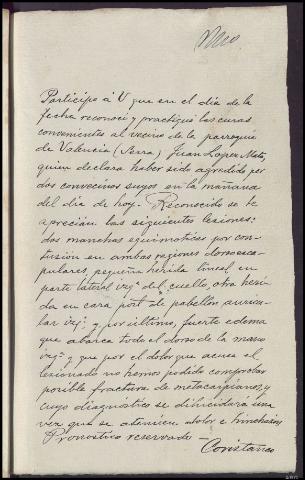 Participo a V que en el dia de la
fecha reconocí y practiqué las curas
convenientes al vecino de la parroquia
de Valencia () Juan Lopez Mato,
quien declara haber sido agredido por
dos convecinos suyos en la mañana
del dia de hoy. Reconocido se le
aprecian las siguientes lesiones:
dos manchas equimoticas por con-
tusión en ambas regiones dorso esca-
pulares pequeña herida lineal en
parte lateral izqª. del cuello, otra heri-
da en cara post. de pabellon auricu-
lar izqº. y por último, fuerte edema
que abarca todo el dorso de la mano
izqª. y que por el dolor que acusa el
lesionado no hemos podido comprobar
posible fractura de metacarpianos, y
cuyo diagnostico se dilucidará una
vez que se atenuen dolor e hinchazón
Pronostico reservado —